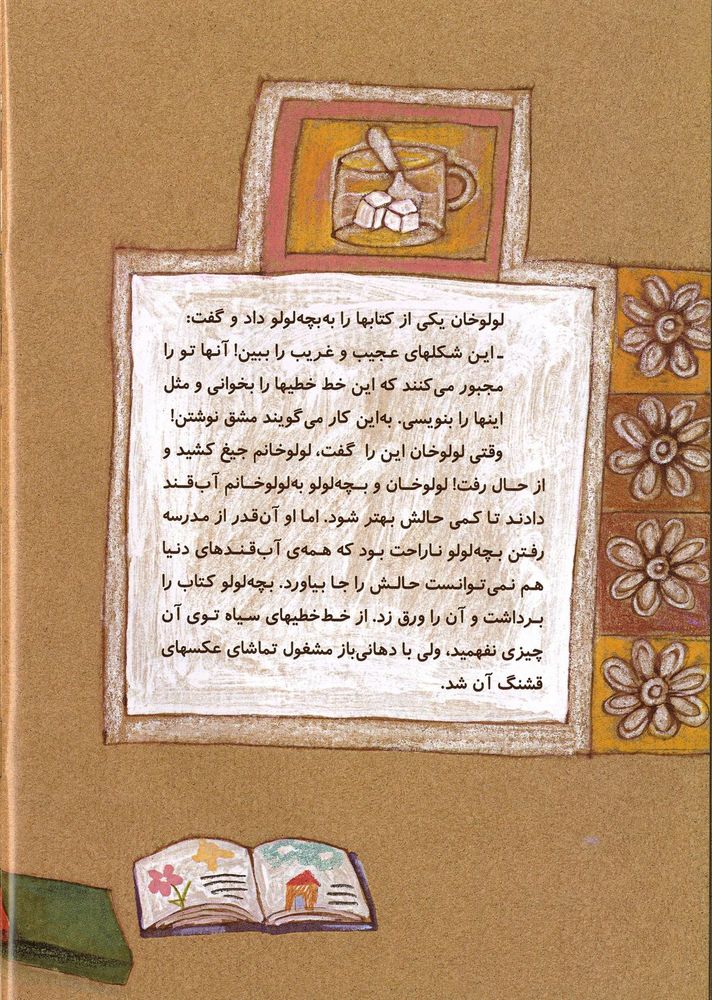 لولوخان یکی از کتابها را به‌بچه‌لولو داد و گفت:
ـ این شکلهای عجیب و غریب را ببین! آنها تو را
مجبور می‌کنند که این خط خطیها را بخوانی و مثل
اینها را بنویسی. به‌این کار می‌گویند مشق نوشتن!
وقتی لولوخان این را گفت، لولوخانم جیغ کشید و
از حال رفت! لولوخان و بچه‌لولو به‌لولوخانم آب‌قند
دادند تا کمی حالش بهتر شود. اما او آن‌قدر از مدرسه
رفتن بچه‌لولو ناراحت بود که همه‌ی آب‌قندهای دنیا
هم نمی‌توانست حالش را جا بیاورد. بچه‌لولو کتاب را
برداشت و آن را ورق زد. از خط‌خطیهای سیاه توی آن
چیزی نفهمید، ولی با دهانی‌باز مشغول تماشای عکسهای
قشنگ آن شد.